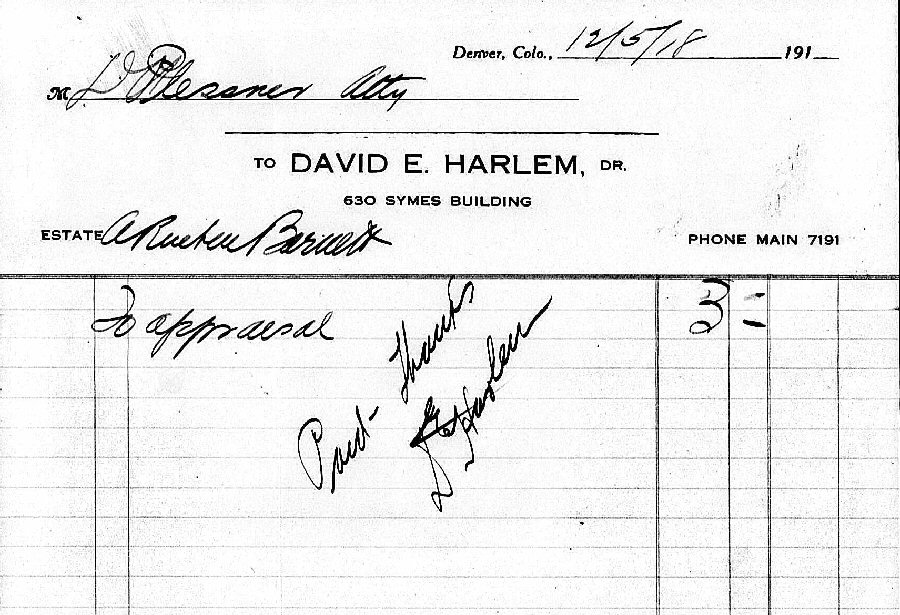 Denver, Colo., 12/5/18 191
M D Plessner Atty
TO DAVID E. HARLEM, DR.
630 SYMES BUILDING
ESTATE A Barnett
PHONE MAIN 7191
To appraisal 3 =
Paid Thanks
D E Harlem